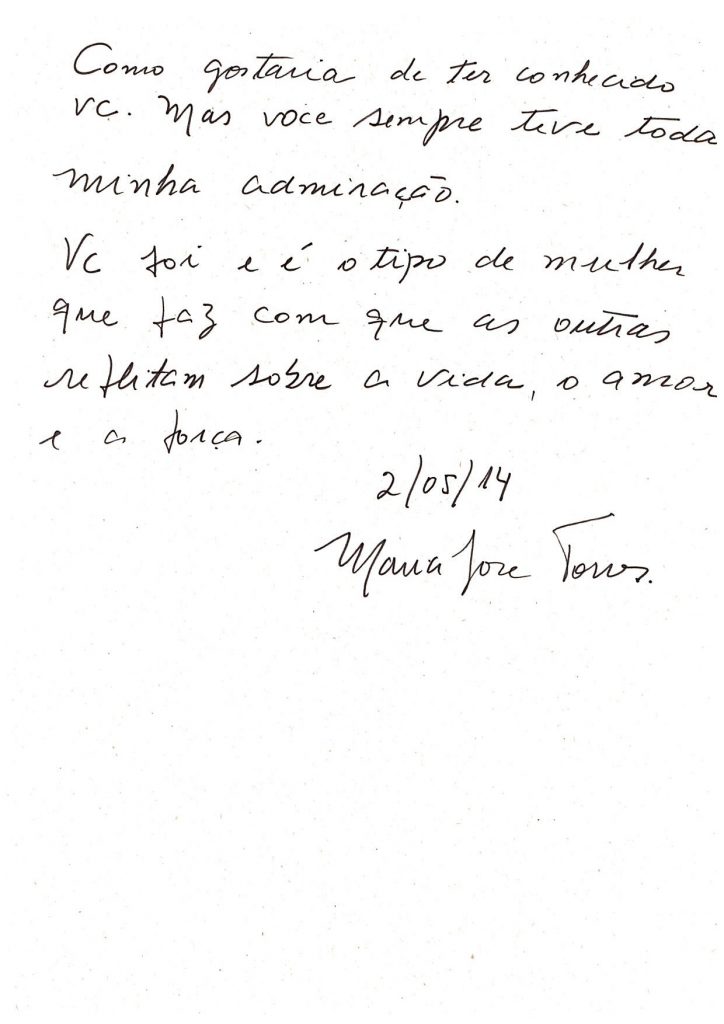 Como gostaria de ter conhecido
vc. Mas voce sempre teve toda
minha admiração.
Vc foi e é o tipo de mulher
que faz com que as outras
reflitam sobre a vida, o amor
e a força.
2/05/14
Maria Jose Torres.